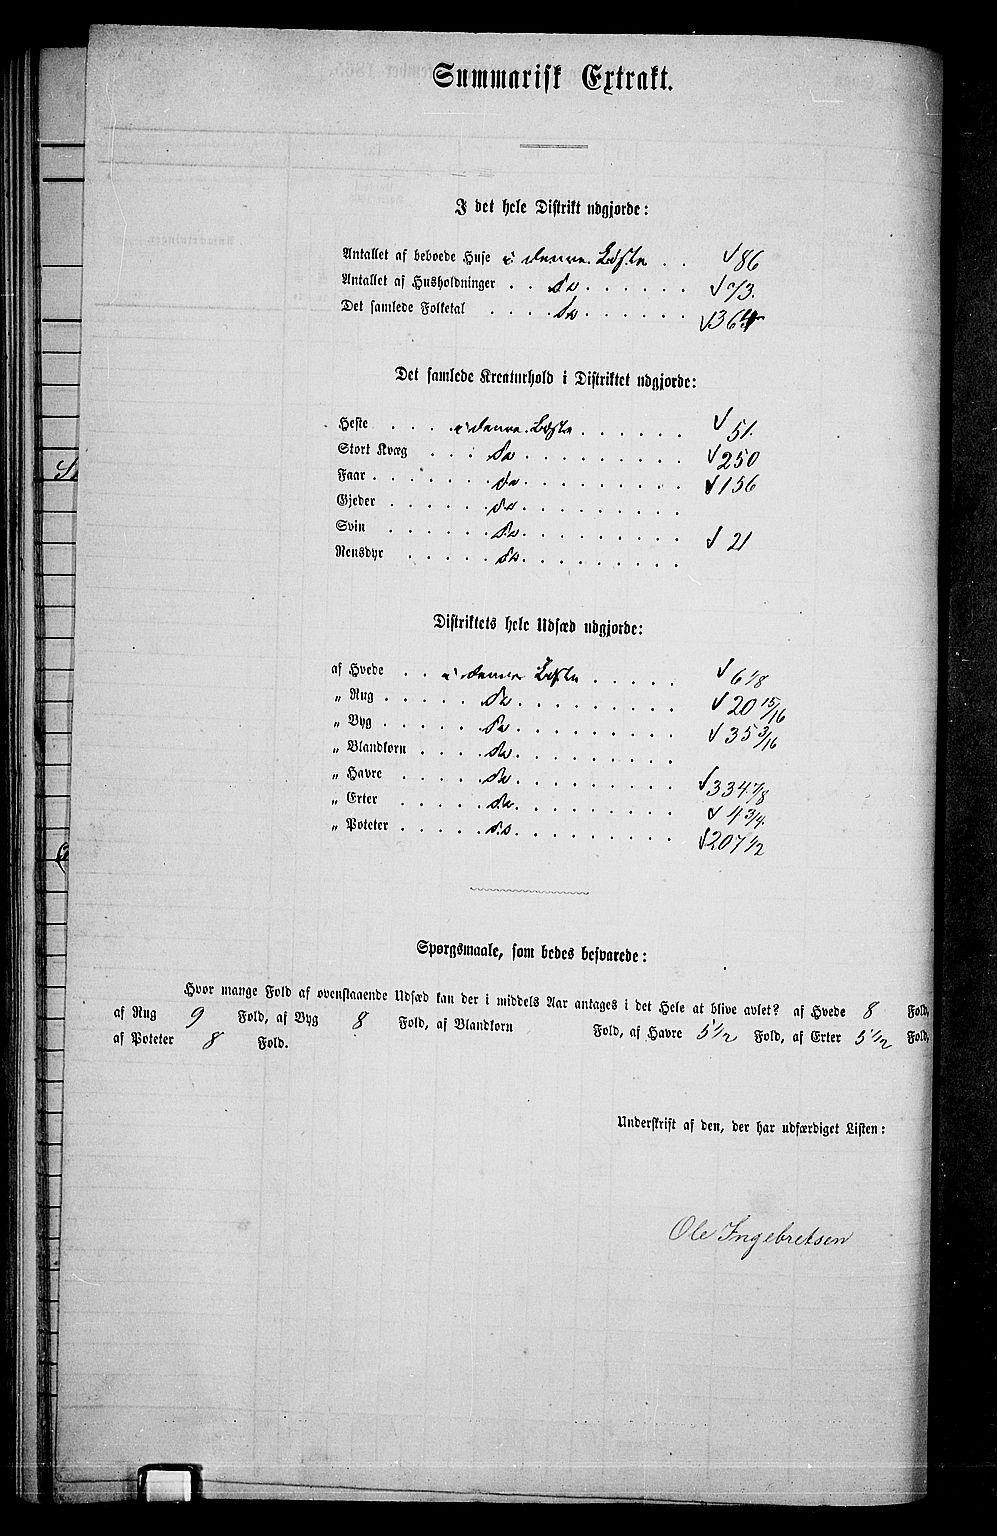 Summarisk Extrakt.
I det hele Distrikt udgjorde:
Antallet af beboede Huse i denne Liste . . √86
Antallet af Husholdninger . . do . . . . . . √73.
Det samlede Folketal . . . . do . . . . . . √364
Det samlede Kreaturhold i Distriktet udgjorde:
Heste . . . . i denne Liste . . . . . . √51.
Stort Kvæg . . . do . . . . . . . . . √250
Faar . . . . . . . do . . . . . . . . . √156
Gjeder . . . . . . do . . . . . . . . .
Svin . . . . . . do . . . . . . . . . √21
Rensdyr . . . . do . . . . . . . . .
Distriktets hele Udsæd udgjorde:
af Hvede . . i denne Liste . . . . . √6 1/8
„ Rug . . . . . do . . . . . . . . . √20 15/16
„ Byg . . . . . do . . . . . . . . . √35 3/16
„ Blandkorn . . . . do . . . . . . . . .
„ Havre . . . . . do . . . . . . . . . √334 7/8
„ Erter . . . . . do . . . . . . . . . √4 3/4.
„ Poteter . . . . . do . . . . . . . . . √207 1/2
Spørgsmaale, som bedes besvarede:
Hvor mange Fold af ovenstaaende Udsæd kan der i middels Aar antages i det Hele at blive avlet? af Hvede 8 Fold,
af Rug 9 Fold, af Byg 8 Fold, af Blandkorn Fold, af Havre 5 1/2 Fold, af Erter 5 1/2 Fold,
af Poteter 8 Fold.
Underskrift af den, der har udfærdiget Listen:
Ole Ingebretsen